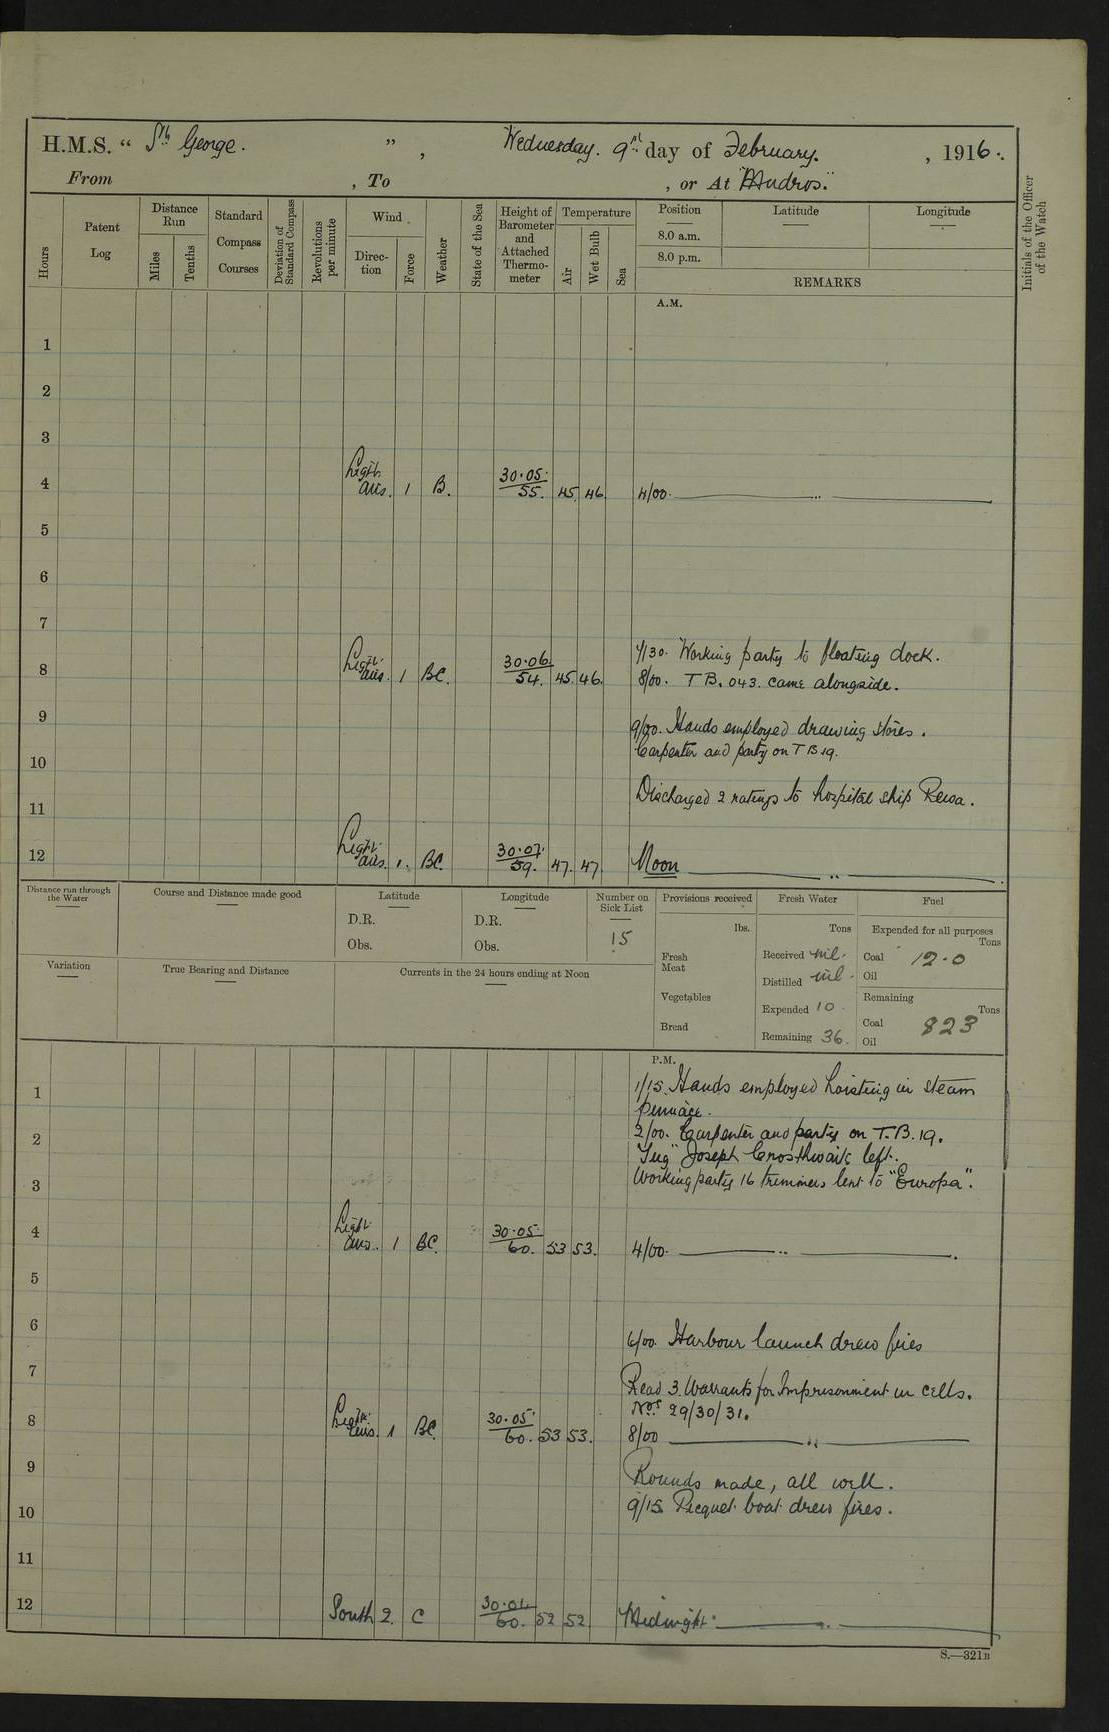 H.M.S. “ St. George. ” , Wednesday. 9th day of February. , 1916.
From , To , or At "Mudros."
Hours
Patent Log
Distance Run
Miles
Tenths
Standard Compass Courses
Deviation of Standard Compass
Revolutions per minute
Wind
Direction
Force
Weather
State of the Sea
Height of Barometer and Attached Thermometer
Temperature
Air
Wet Bulb
Sea
Position
Latitude
Longitude
8.0 a.m.
8.0 p.m.
REMARKS
Initials of the Officer of the Watch
A.M.
1
2
3
4 Light airs. 1 B. 30.05 55. 45. 46. 4/00.
5
6
7
7/30. Working party to floating dock.
8 Light airs. 1 BC. 30.06 54. 45. 46. 8/00. T B. 043. came alongside.
9
9/00. Hands employed drawing stores.
Carpenter and party on T B 19.
10
Discharged 2 ratings to hospital ship Rewa.
11
12 Light airs. 1. BC. 30.07 59. 47. 47. Noon
Distance run through the Water
Course and Distance made good
Latitude
D.R.
Obs.
Longitude
D.R.
Obs.
Number on Sick List
15
Provisions received
lbs.
Fresh Meat
Vegetables
Bread
Fresh Water
Tons
Received nil.
Distilled nil.
Expended 10.
Remaining 36.
Fuel
Expended for all purposes
Tons
Coal 12.0
Oil
Remaining
Tons
Coal 823
Oil
Variation
True Bearing and Distance
Currents in the 24 hours ending at Noon
P.M.
1 1/15. Hands employed hoisting in steam
pinnace.
2 2/00. Carpenter and party on T.B. 19.
"Tug" Joseph Crosthwaite left.
3 Working party 16 trimmers lent to "Europa".
4 Light airs. 1 BC. 30.05 60. 53 53. 4/00.
5
6
6/00. Harbour launch drew fires
7
Read 3. Warrants for Imprisonment in cells.
Nos. 29/30/31.
8 Light airs. 1 BC. 30.05 60. 53 53. 8/00
9
Rounds made, all well.
9/15 Picquet boat drew fires.
10
11
12 South 2. C 30.04 60. 52 52. Midnight.
S.—321B